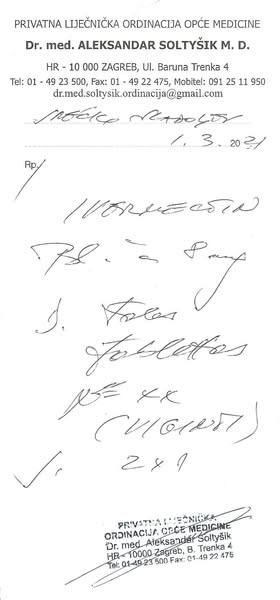 PRIVATNA LIJEČNIČKA ORDINACIJA OPĆE MEDICINE
Dr. med. ALEKSANDAR SOLTYŠIK M. D.
HR - 10 000 ZAGREB, Ul. Baruna Trenka 4
Tel: 01 - 49 23 500, Fax: 01 - 49 22 475, Mobitel: 091 25 11 950
dr.med.soltysik.ordinacija@gmail.com
1. 3. 2021
Rp/
IVERMECTIN
a 8 mg
D. Tales
Tablettas
N° XX
(VIGINTI)
S. 2x1
PRIVATNA LIJEČNIČKA
ORDINACIJA OPĆE MEDICINE
Dr. med. Aleksandar Soltyšik
HR - 10000 Zagreb, B. Trenka 4
Tel: 01-49 23 500 Fax: 01-49 22 475